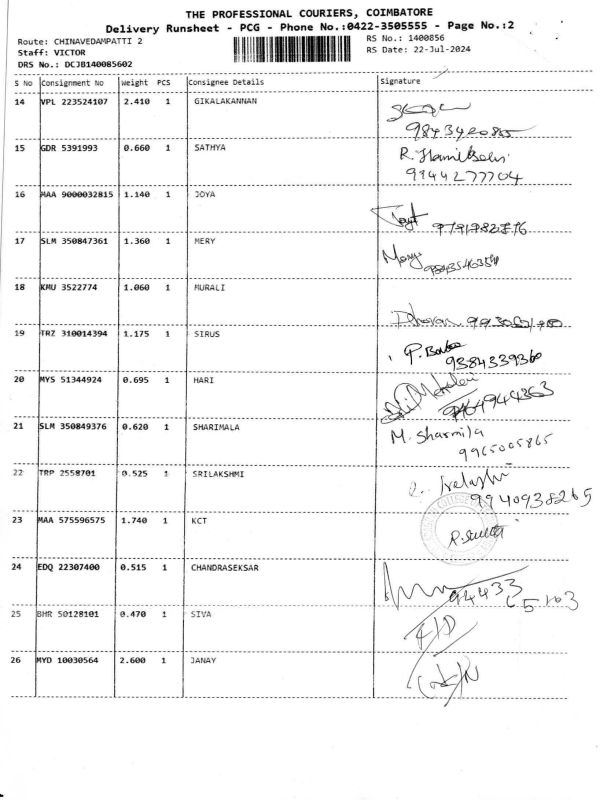 THE PROFESSIONAL COURIERS, COIMBATORE
Delivery Runsheet - PCG - Phone No.:0422-3505555 - Page No.:2
Route: CHINAVEDAMPATTI 2
RS No.: 1400856
Staff: VICTOR
RS Date: 22-Jul-2024
DRS No.: DCJB140085602
S No Consignment No Weight PCS Consignee Details Signature
14 VPL 223524107 2.410 1 GIKALAKANNAN
15 GDR 5391993 0.660 1 SATHYA
9944277704
16 MAA 9000032815 1.140 1 JOYA
17 SLM 350847361 1.360 1 MERY
Mary
18 KMU 3522774 1.060 1 MURALI
19 TRZ 310014394 1.175 1 SIRUS
9384339360
20 MYS 51344924 0.695 1 HARI
21 SLM 350849376 0.620 1 SHARIMALA
M. Sharmila
9965005865
22 TRP 2558701 0.525 1 SRILAKSHMI
9940938265
23 MAA 575596575 1.740 1 KCT
24 EDQ 22307400 0.515 1 CHANDRASEKSAR
94433
65103
25 BHR 50128101 0.470 1 SIVA
26 MYD 10030564 2.600 1 JANAY